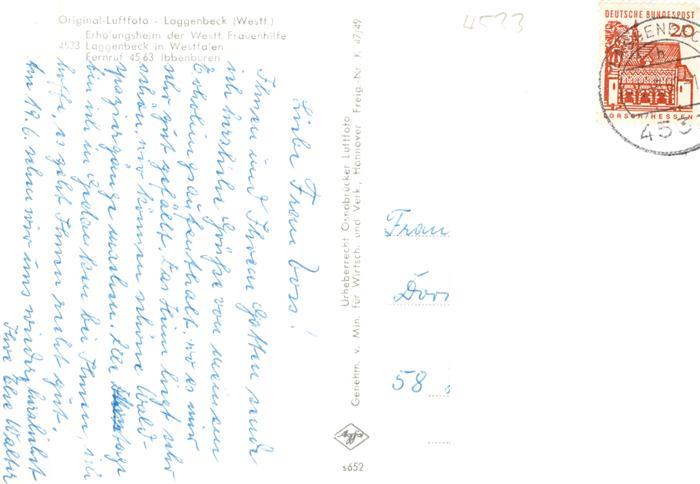 Original-Luftfoto - Laggenbeck (Westf.)
Erholungsheim der Westf. Frauenhilfe
4533 Laggenbeck in Westfalen
Fernruf 45 63 Ibbenburen
Liebe Frau Voss!
Ihnen und Ihrem Gatten sende
ich herzliche Grüße von meinem
Erholungsaufenthalt, wo es mir
sehr gut gefällt. Das Heim liegt sehr
schön, wir können schöne Wald-
spaziergänge machen.
bin ich in Gedanken bei Ihnen, ich
hoffe, es geht Ihnen recht gut.
Am 19.6. sehen wir uns wieder, herzlichst
Ihre Walter
Urheberrecht Osnabrücker Luftfoto
Genehm. v. Min. für Wirtsch. und Verk., Hannover Freig.-Nr. K 47/49
Agfa
s652
4533
DEUTSCHE BUNDESPOST
20
LORSCH/HESSEN
453
Frau
58